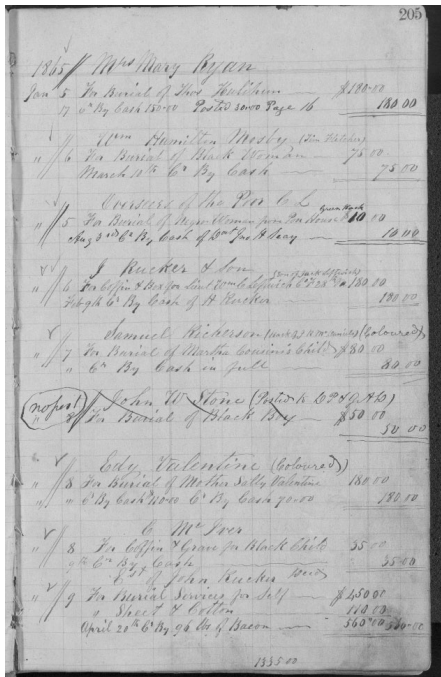 205
1865 Mrs Mary Ryan
Jan 5 For Burial of Thos $180.00
17 Cr By Cash 150.00 Posted 30.00 Page 16 180.00
Wm Hamilton Mosby
" 6 For Burial of Black Woman 75.00
March 10th Cr By Cash 75.00
Overseers of the Poor C L
" 5 For Burial of Negro Woman from Poor House 10.00
Aug 3rd Cr By Cash of Jas H Seay 10.00
J Rucker & Son
" 6 For Coffin & Box for Lieut Wm C Co F 28 Va 180.00
Feb 9th Cr By Cash of H Rucker 180.00
Samuel Kickerson (Coloured)
" 7 For Burial of Martha Cousins's Child $80.00
" " Cr By Cash in full 80.00
no post John W Stone (Posted to D P & G A D)
" 8 For Burial of Black Boy $50.00
50.00
Edy Valentine (Coloured)
" 8 For Burial of Mother Sally Valentine 180.00
" " Cr By Cash 110.00 Cr By Cash 70.00 180.00
C McIver
" 8 For Coffin & Grave for Black Child 35.00
9th Cr By Cash 35.00
John Rucker
" 9 For Burial Services for Self $450.00
" Sheet & Cotton 110.00
April 20th Cr By 96 lbs of Bacon 560.00 560.00
1335.00